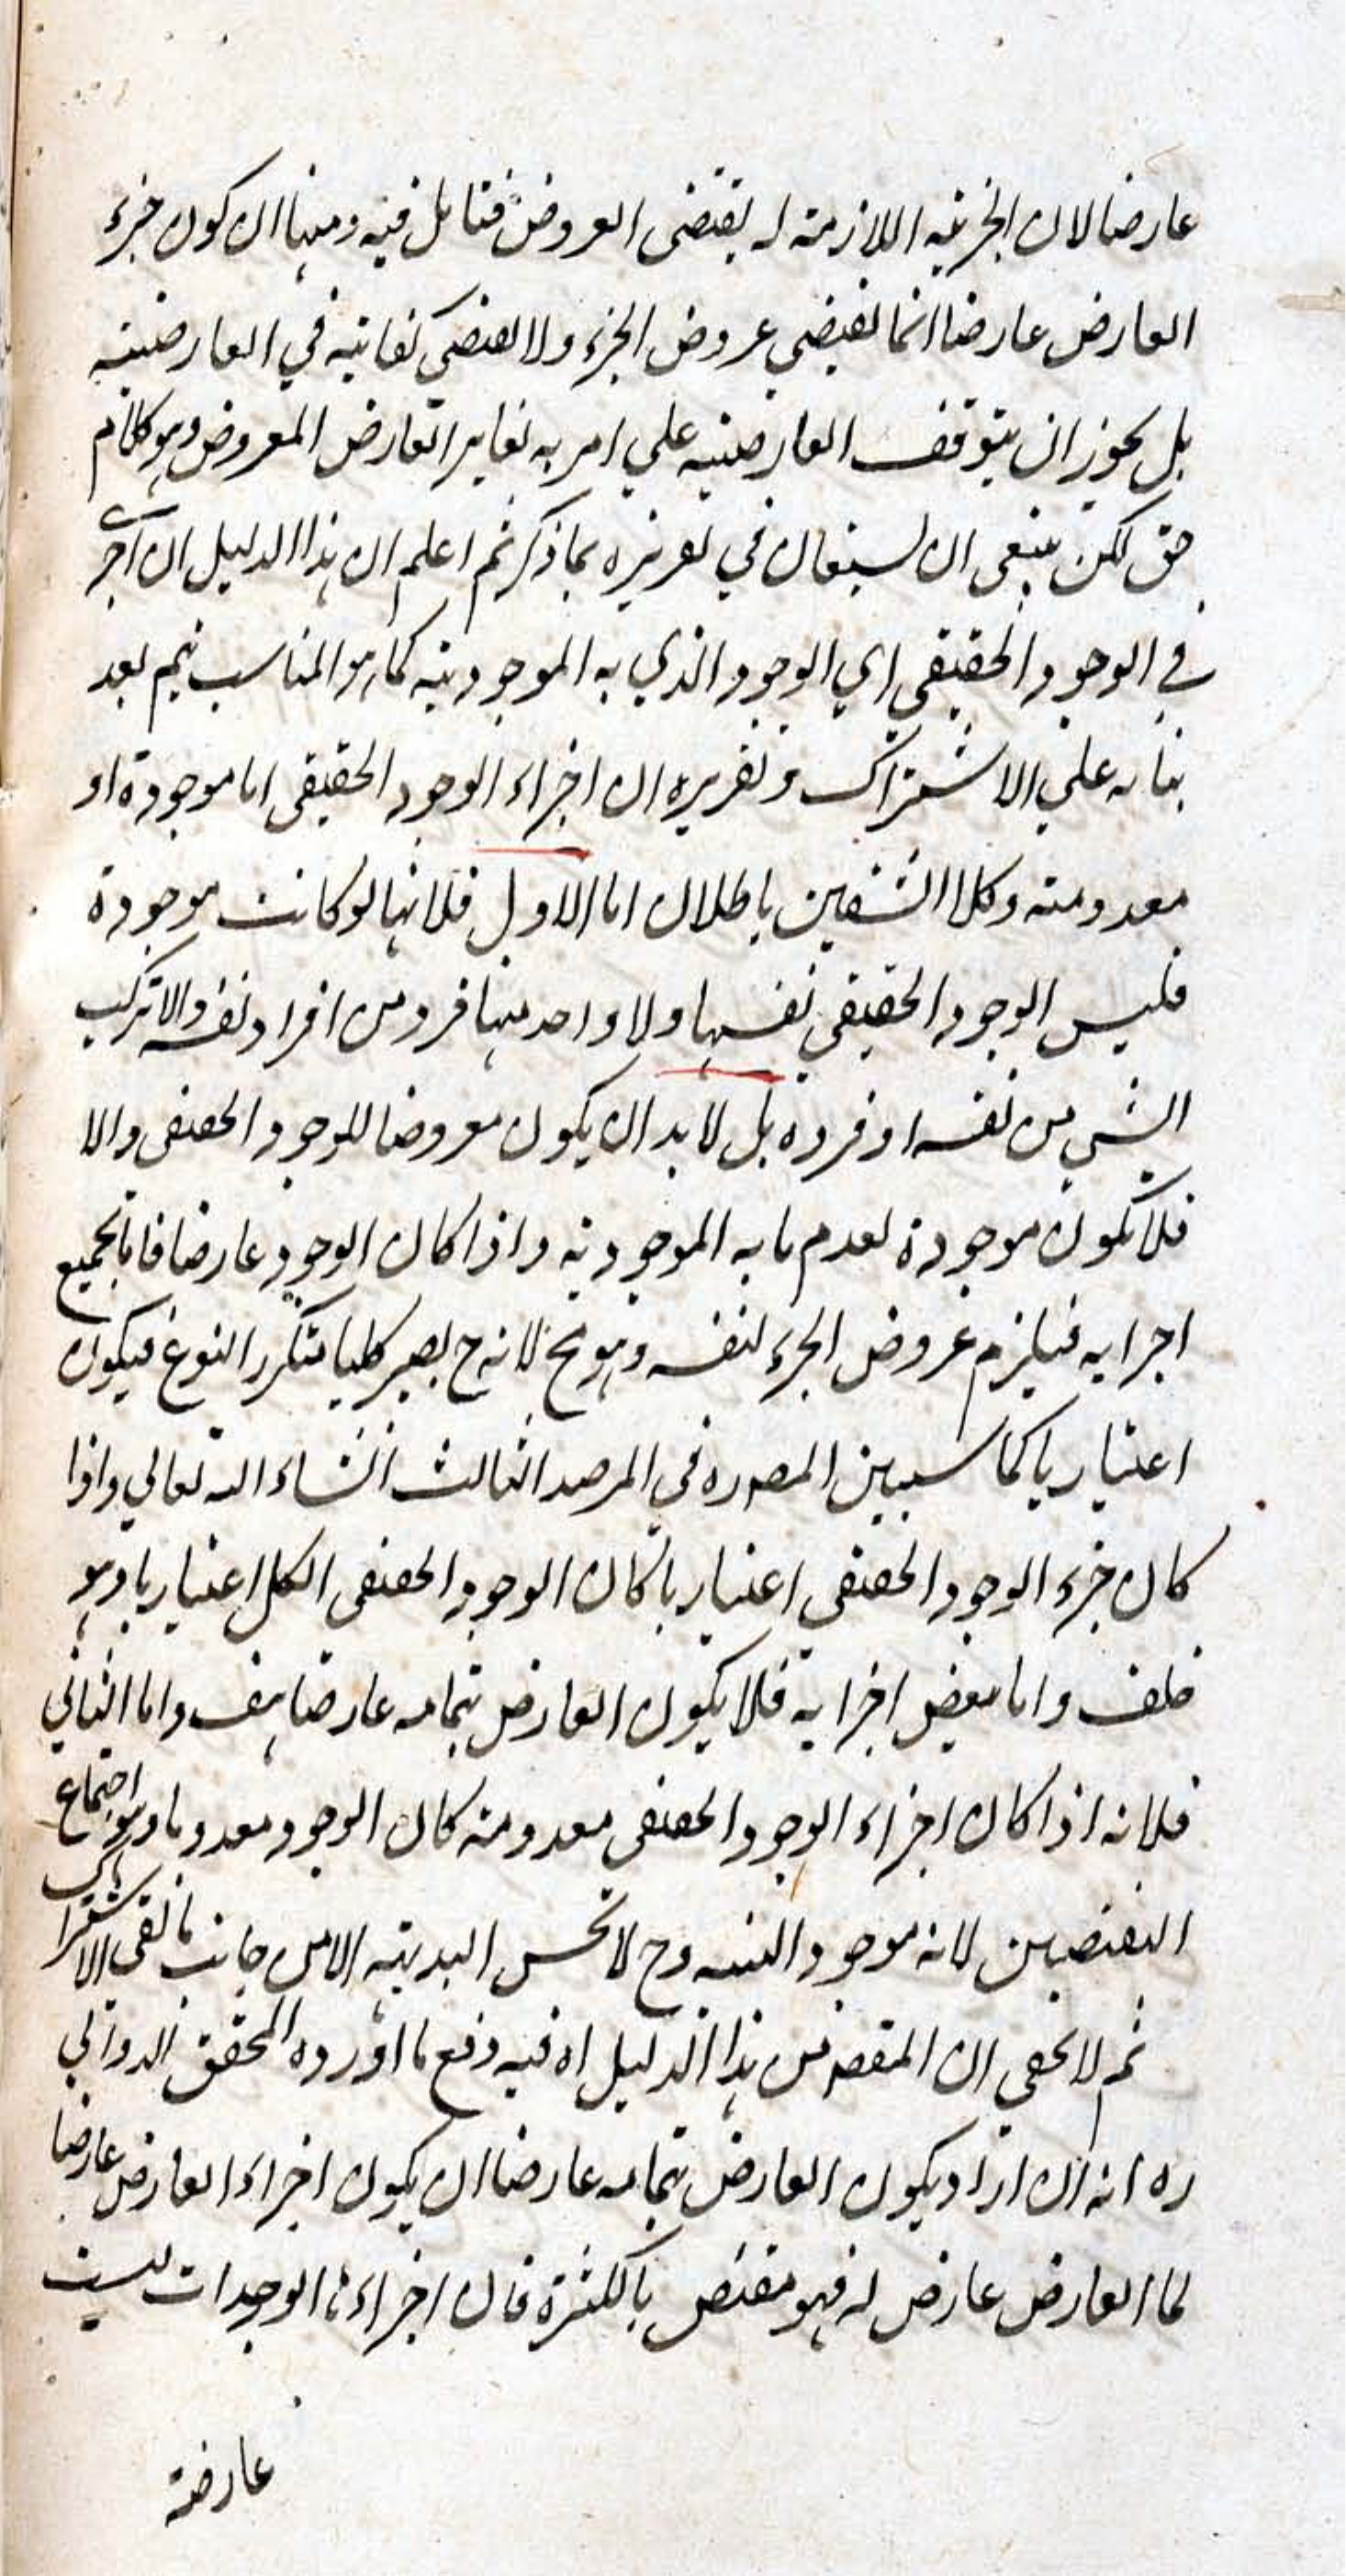 عارضا لان الجزئية اللازمة له يقتضى العروض فتامل فيه ومنها ان كون جزء
العارض عارضا انما يقتضي عروض الجزء ولا يقتضى كفايته في العارضية
بل يجوز ان يتوقف العارضية علي امر به يغاير العارض المعروض وهو كلام
حق لكن ينبغى ان يستعان في تقريره بما ذكر ثم اعلم ان هذا الدليل ان اجرى
في الوجود الحقيقى اي الوجود الذي به الموجودية كما هو المناسب يتم بعد
بنائه علي الاشتراك وتقريره ان اجزاء الوجود الحقيقى اما موجودة او
معدومة وكلا الشقين باطلان اما الاول فلانها لو كانت موجودة
فليس الوجود الحقيقي نفسها ولا واحد منها فرد من افراد نفسه والا تركب
الشي من نفسه او فرده بل لا بد ان يكون معروضا للوجود الحقيقى والا
فلا تكون موجودة لعدم ما به الموجودية واذا كان الوجود عارضا فاما بجميع
اجزايه فيلزم عروض الجزء لنفسه وهو مح لانه ح يصير كليا متكرر النوع فيكون
اعتباريا كما سيبين المصره في المرصد الثالث انشاء الله تعالي واذا
كان جزء الوجود الحقيقى اعتباريا كان الوجود الحقيقى الكل اعتباريا وهو
خلف واما ببعض اجزايه فلا يكون العارض بتمامه عارضا هف واما الثاني
فلانه اذا كان اجزاء الوجود الحقيقى معدومة كان الوجود معدوما وهو اجتماع
النقيضين لانه موجود البتة وح لا تحسن البديهية الا من جانب الاشتراك
ثم لا يخفى ان المقصد من هذا الدليل اه فيه دفع ما اورده المحقق الدواني
ره انه ان اراد بكون العارض بتمامه عارضا ان يكون اجزاء العارض عارضا
لما العارض عارض له فهو منقض بالكثرة فان اجزاءها الوحدات ليست
عارضة